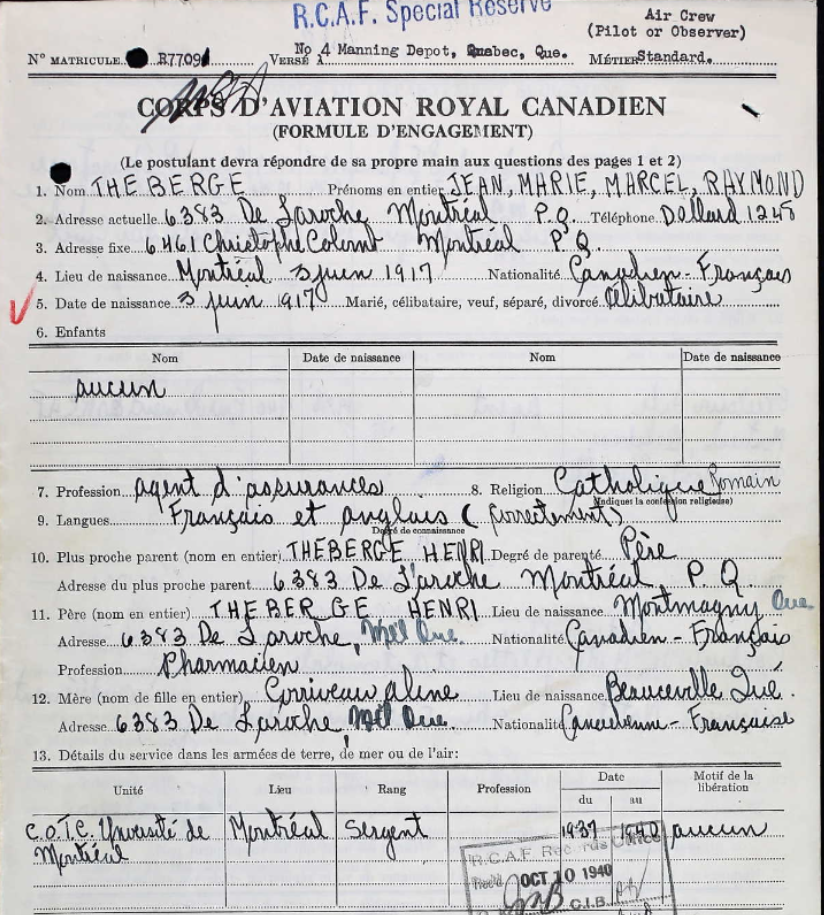 R.C.A.F. Special Reserve
Air Crew
(Pilot or Observer)
No 4 Manning Depot, Quebec, Que.
Nº MATRICULE R77091 VERSÉ À MÉTIER Standard.
CORPS D'AVIATION ROYAL CANADIEN
(FORMULE D'ENGAGEMENT)
(Le postulant devra répondre de sa propre main aux questions des pages 1 et 2)
1. Nom THEBERGE Prénoms en entier JEAN, MARIE, MARCEL, RAYMOND
2. Adresse actuelle 6383 De Laroche Montréal P.Q. Téléphone Dollard 1248
3. Adresse fixe 6461 Christophe Colomb Montréal P.Q.
4. Lieu de naissance Montréal 3 juin 1917 Nationalité Canadien-Français
5. Date de naissance 3 juin 1917 Marié, célibataire, veuf, séparé, divorcé célibataire
6. Enfants
Nom Date de naissance Nom Date de naissance
aucun
7. Profession agent d'assurances 8. Religion Catholique Romain
(Indiquez la confession religieuse)
9. Langues Français et anglais (correctement)
Degré de connaissance
10. Plus proche parent (nom en entier) THEBERGE HENRI Degré de parenté Père
Adresse du plus proche parent 6383 De Laroche Montréal, P.Q.
11. Père (nom en entier) THEBERGE HENRI Lieu de naissance Montmagny Que.
Adresse 6383 De Laroche, Mtl Que. Nationalité Canadien-Français
Profession Pharmacien
12. Mère (nom de fille en entier) Corriveau Aline Lieu de naissance Beauceville Qué.
Adresse 6383 De Laroche, Mtl Que. Nationalité Canadienne-Française
13. Détails du service dans les armées de terre, de mer ou de l'air:
Unité Lieu Rang Profession Date Motif de la libération
du au
C.O.T.C. Université de Montréal Montréal Sergent 1937 1940 aucun
R.C.A.F. Records Office
Rec'd OCT 10 1940
C.I.B.